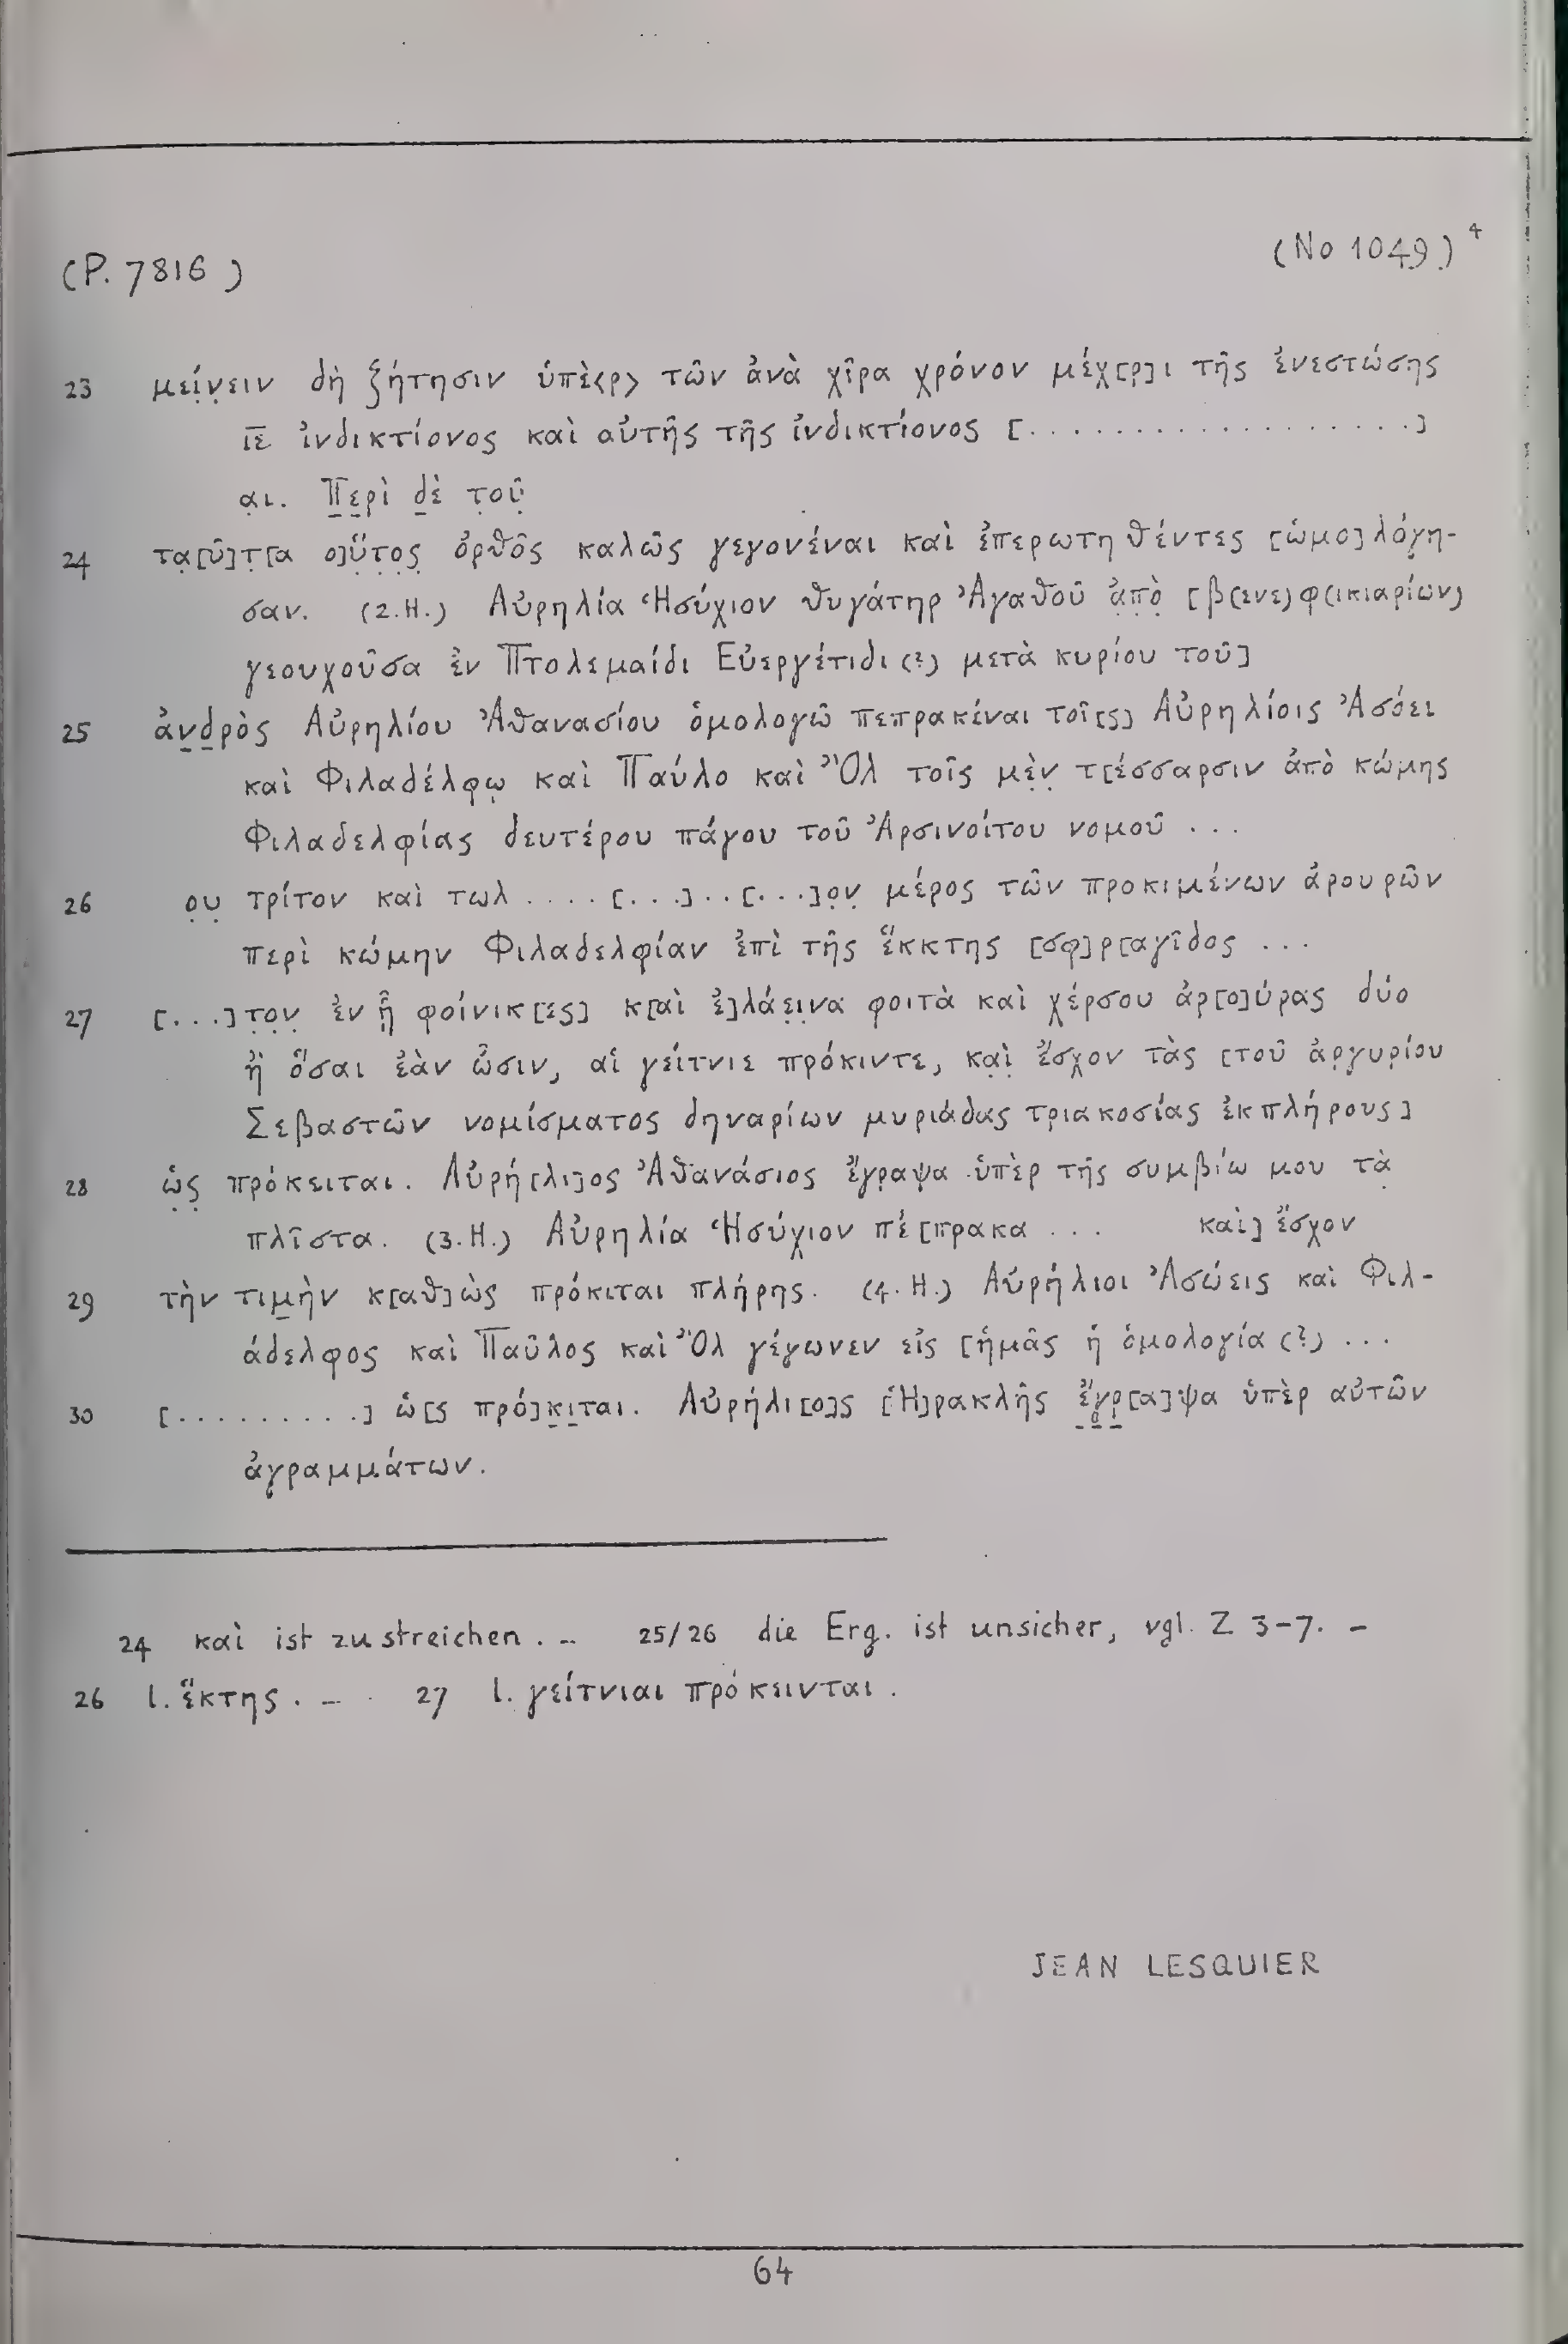 (P. 7816)
(No 1049) 4
23 μεί̣ν̣ειν δὴ ζήτησιν ὑπὲ<ρ> τῶν ἀνὰ χῖρα χρόνον μέχ[ρ]ι τῆς ἐνεστώσης
ιε̅ ἰνδικτίονος καὶ αὐτῆς τῆς ἰνδικτίονος [..................]
α̣ι. Π̣ε̣ρὶ δ̣ὲ τ̣οῦ̣
24 τα̣[ῦ]τ̣[α ο]ὕ̣τ̣ο̣ς̣ ὀρθο͂ς καλῶς γεγονέναι καὶ ἐπερωτηθέντες [ὡμο]λόγη-
σαν. (2.H.) Αὐρηλία Ἡσύχιον θυγάτηρ Ἀγαθοῦ ἀ̣π̣ὸ̣ [β(ενε)φ(ικιαρίων)
γεουχοῦσα ἐν Πτολεμαίδι Εὐεργέτιδι (?) μετὰ κυρίου τοῦ]
25 ἀν̣δ̣ρὸς Αὐρηλίου Ἀθανασίου ὁμολογῶ πεπρακέναι τοῖ[ς] Αὐρηλίοις Ἀσόει
καὶ Φιλαδέλφῳ καὶ Παύλο καὶ Ὂλ τοῖς μὲν̣ τ[έσσαρσιν ἀπὸ κώμης
Φιλαδελφίας δευτέρου πάγου τοῦ Ἀρσινοίτου νομοῦ ...
26 ο̣υ̣ τρίτον καὶ τωλ ....[...]..[...]ο̣ν̣ μέρος τῶν προκιμένων ἀρουρῶν
περὶ κώμην Φιλαδελφίαν ἐπὶ τῆς ἕκκτης [σφ]ρ[αγῖδος ...
27 [...]τ̣ο̣ν̣ ἐν ᾗ̣ φοίνικ[ες] κ[αὶ ἐ]λάε̣ι̣να φοιτὰ καὶ χέρσου ἀρ[ο]ύρας δύο
ἢ̣ ὅσαι ἐὰν ὦσιν, αἱ γείτνιε πρόκιντε, κα̣ὶ̣ ἔσχον τὰς [τοῦ ἀργυρίου
Σεβαστῶν νομίσματος δηναρίων μυριάδας τριακοσίας ἐκπλήρους]
28 ὡ̣ς̣ πρόκειται. Αὐρή[λι]ος Ἀθανάσιος ἔγραψα ὑπὲρ τῆς συμβίω μου τὰ̣
πλῖστα. (3.H.) Αὐρηλία Ἡσύχιον πέ[πρακα ... καὶ] ἔσχον
29 τὴν τιμ̣ὴν κ[αθ]ὼς πρόκιται πλήρης. (4.H.) Αὐρήλιοι Ἀσώεις καὶ Φιλ-
άδελφος καὶ Παῦλος καὶ Ὂλ γέγωνεν εἰς [ἡμᾶς ἡ ὁμολογία (?) ...
30 [..........] ὡ[ς πρό]κ̣ι̣ται. Αὐρήλι[ο]ς [Ἡ]ρακλῆς ἔ̣γ̣ρ̣[α]ψα ὑπὲρ αὐτῶν
ἀγραμμάτων.
24 καὶ ist zu streichen. – 25/26 die Erg. ist unsicher, vgl. Z 3-7. –
26 l. ἕκτης. – 27 l. γείτνιαι πρόκεινται.
JEAN LESQUIER
64